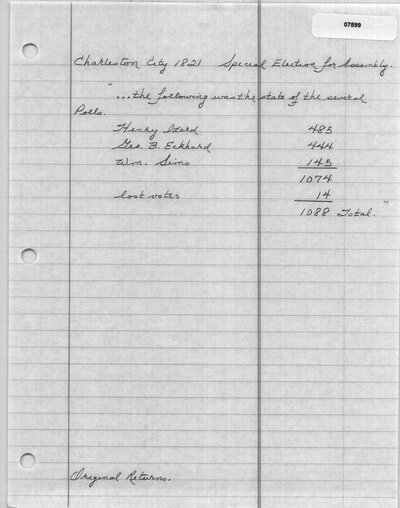 07899
Charleston City 1821 Special Election for Assembly.
"...the following was the state of the several
Polls.
Henry Izard 485
Geo. B. Eckhard 444
Wm. Sims 145
1074
lost votes 14
1088 Total."
Original Returns.